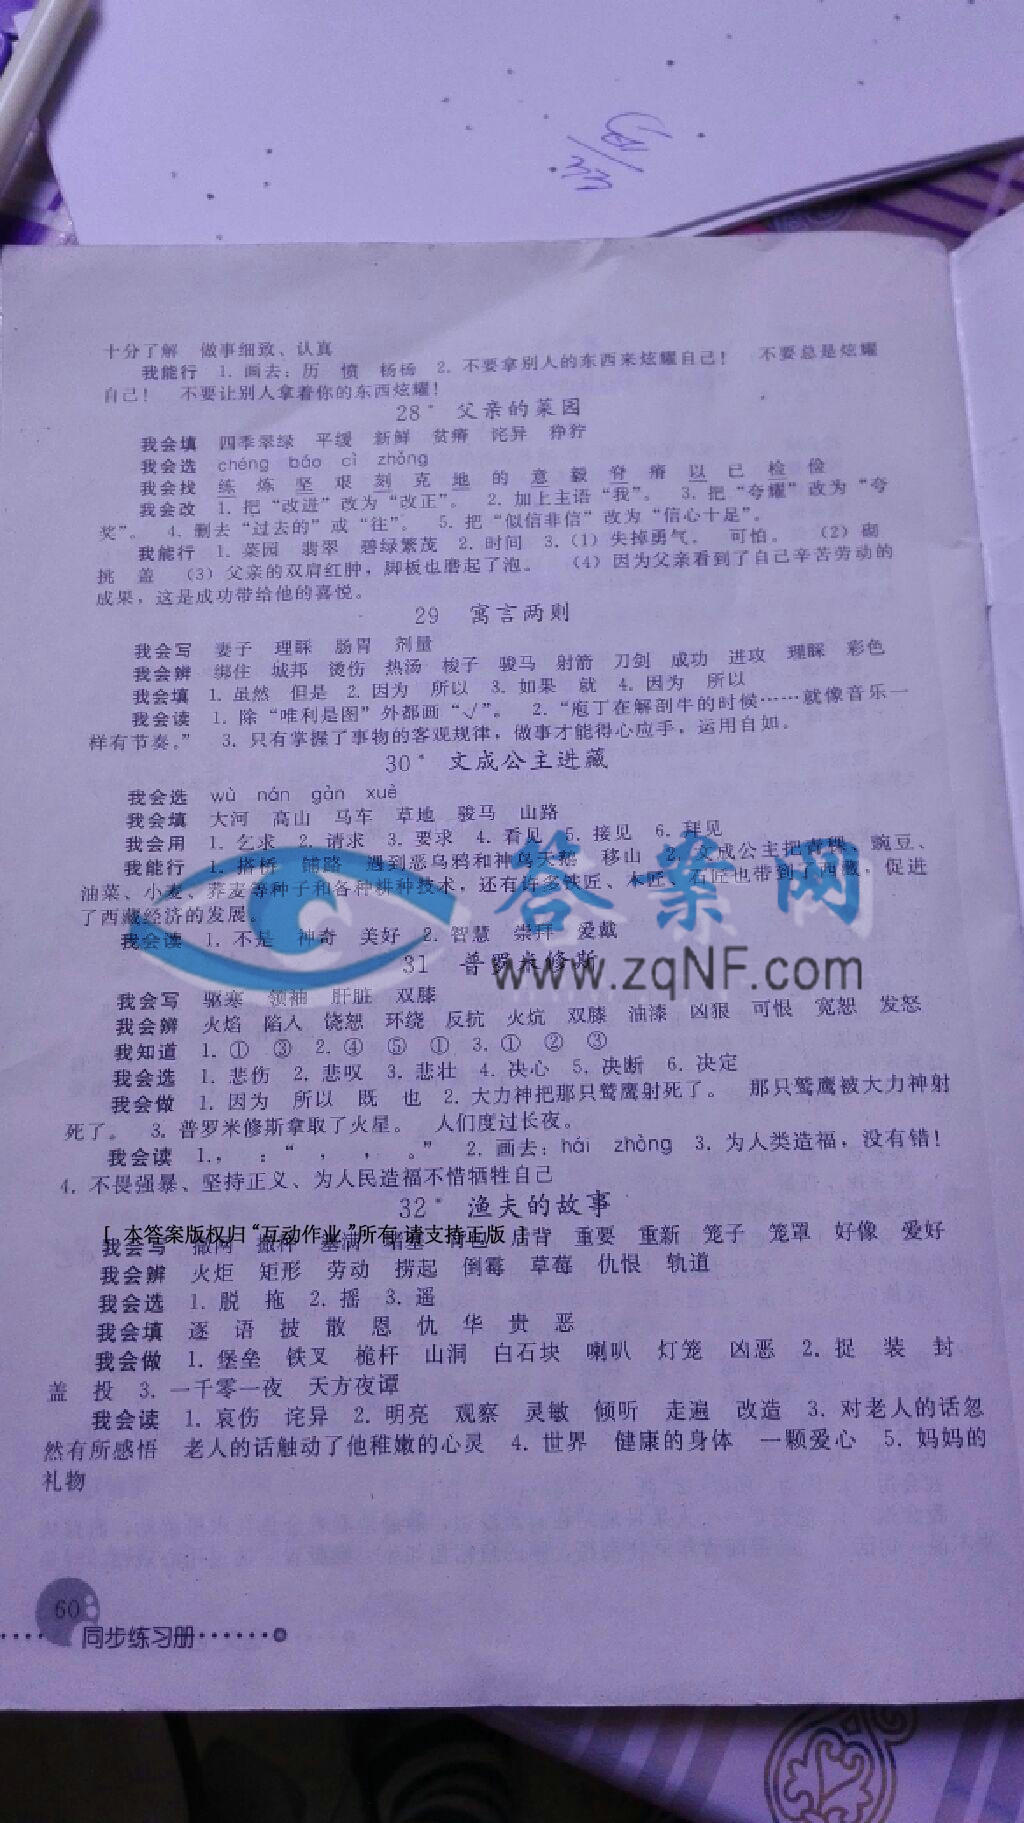 十分了解 做事细致、认真
我能行 1. 画去：历 愤 杨杨 2. 不要拿别人的东西来炫耀自己！ 不要总是炫耀
自己！ 不要让别人拿着你的东西炫耀！
28* 父亲的菜园
我会填 四季翠绿 平缓 新鲜 贫瘠 诧异 狰狞
我会选 chéng báo cì zhǒng
我会找 练 炼 坚 艰 刻 克 地 的 意 毅 脊 瘠 以 已 检 俭
我会改 1. 把“改进”改为“改正”。 2. 加上主语“我”。 3. 把“夸耀”改为“夸
奖”。 4. 删去“过去的”或“往”。 5. 把“似信非信”改为“信心十足”。
我能行 1. 菜园 翡翠 碧绿繁茂 2. 时间 3. (1) 失掉勇气。 可怕。 (2) 砌
挑 盖 (3) 父亲的双肩红肿，脚板也磨起了泡。 (4) 因为父亲看到了自己辛苦劳动的
成果，这是成功带给他的喜悦。
29 寓言两则
我会写 妻子 理睬 肠胃 剂量
我会辨 绑住 城邦 烫伤 热汤 梭子 骏马 射箭 刀剑 成功 进攻 理睬 彩色
我会填 1. 虽然 但是 2. 因为 所以 3. 如果 就 4. 因为 所以
我会读 1. 除“唯利是图”外都画“√”。 2. “庖丁在解剖牛的时候……就像音乐一
样有节奏。” 3. 只有掌握了事物的客观规律，做事才能得心应手，运用自如。
30* 文成公主进藏
我会选 wù nán gàn xuè
我会填 大河 高山 马车 草地 骏马 山路
我会用 1. 乞求 2. 请求 3. 要求 4. 看见 5. 接见 6. 拜见
我能行 1. 搭桥 铺路 遇到恶乌鸦和神鸟天鹅 移山 2. 文成公主把青稞、豌豆、
油菜、小麦、荞麦等种子和各种耕种技术，还有许多铁匠、木匠、石匠也带到了西藏，促进
了西藏经济的发展。
我会读 1. 不是 神奇 美好 2. 智慧 崇拜 爱戴
答案网
www.zqNF.com
31 普罗米修斯
我会写 驱寒 领袖 肝脏 双膝
我会辨 火焰 陷入 饶恕 环绕 反抗 火炕 双膝 油漆 凶狠 可恨 宽恕 发怒
我知道 1. ① ③ 2. ④ ⑤ ① 3. ① ② ③
我会选 1. 悲伤 2. 悲叹 3. 悲壮 4. 决心 5. 决断 6. 决定
我会做 1. 因为 所以 既 也 2. 大力神把那只鹫鹰射死了。 那只鹫鹰被大力神射
死了。 3. 普罗米修斯拿取了火星。 人们度过长夜。
我会读 1. ， ：“ ， ， 。” 2. 画去：hái zhòng 3. 为人类造福，没有错！
4. 不畏强暴、坚持正义、为人民造福不惜牺牲自己
32* 渔夫的故事
[ 本答案版权归“互动作业”所有,请支持正版 ]
我会写 撒网 后背 重要 重新 笼子 笼罩 好像 爱好
我会辨 火炬 矩形 劳动 捞起 倒霉 草莓 仇恨 轨道
我会选 1. 脱 拖 2. 摇 3. 遥
我会填 逐 语 披 散 恩 仇 华 贵 恶
我会做 1. 堡垒 铁叉 桅杆 山洞 白石块 喇叭 灯笼 凶恶 2. 捉 装 封
盖 投 3. 一千零一夜 天方夜谭
我会读 1. 哀伤 诧异 2. 明亮 观察 灵敏 倾听 走遍 改造 3. 对老人的话忽
然有所感悟 老人的话触动了他稚嫩的心灵 4. 世界 健康的身体 一颗爱心 5. 妈妈的
礼物
60
同步练习册